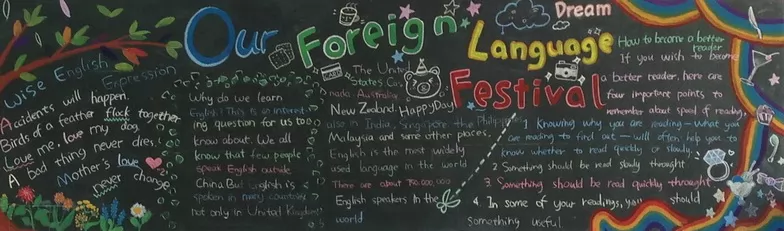 Our Foreign Language Festival
Dream
Wise English
Expression
Accidents will happen.
Birds of a feather flock together
Love me, love my dog.
A bad thing never dies.
Mother's love
never change
Why do we learn
English? This is an interest-
ing question for us too
know about. We all
know that few people
speak English outside
China But English is
spoken in many countries
not only in United Kingdom
The United
States Ca
nada Australia
New Zealand HappyDay
also in India, Singapore the Philippines
Malaysia and some other places.
English is the most widely
used language in the world
There are about 750,000,000
English speakers in the
world
How to become a better
reader
If you wish to become
a better reader, here are
four important points to
remember about speed of reading
1 Knowing why you are reading—what you
are reading to find out—will often help you to
know whether to read quickly or slowly.
2 Something should be read slowly throught
3. Something should be read quickly throught
4. In some of your readings, you should
Something useful